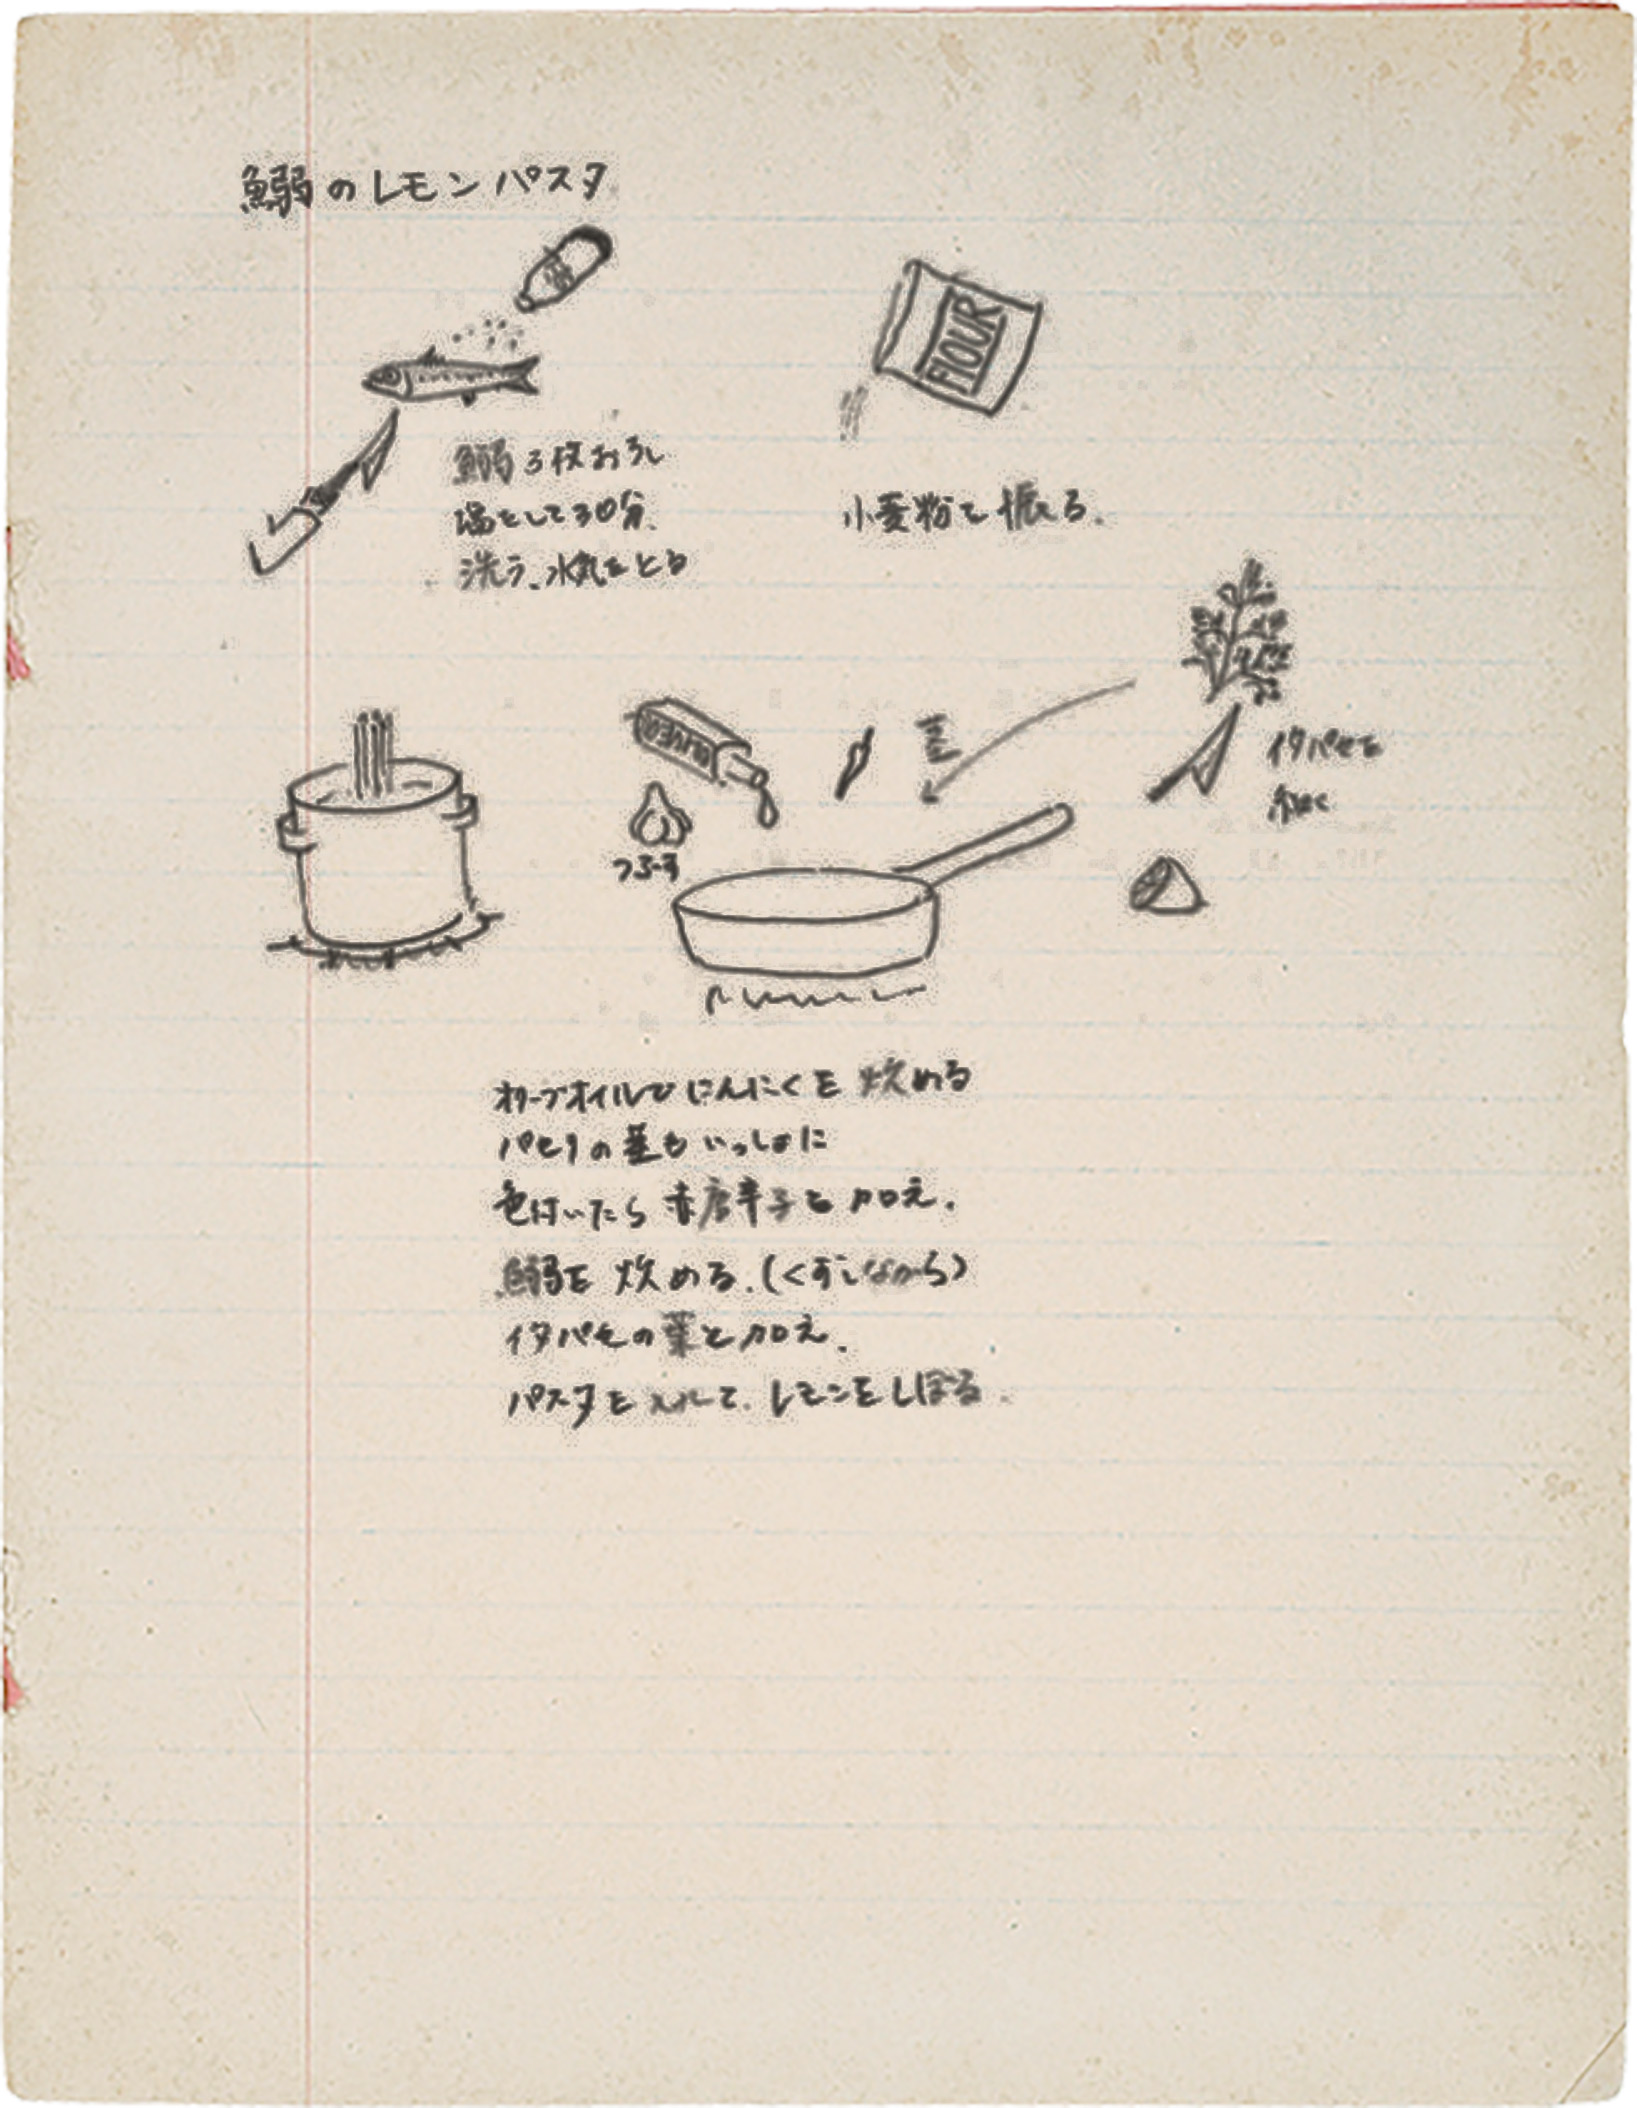 鰯のレモンパスタ
鰯3枚おろし
塩をして30分.
洗う、水気をとる
FlOUR
小麦粉を振る.
OLIVEO
つぶす
茎
イタパセを
オリーブオイルでにんにくを炒める
パセリの茎もいっしょに
色付いたら赤唐辛子を加え.
鰯を炒める.(くずしながら)
イタパセの葉を加え.
パスタを入れて.レモンをしぼる.